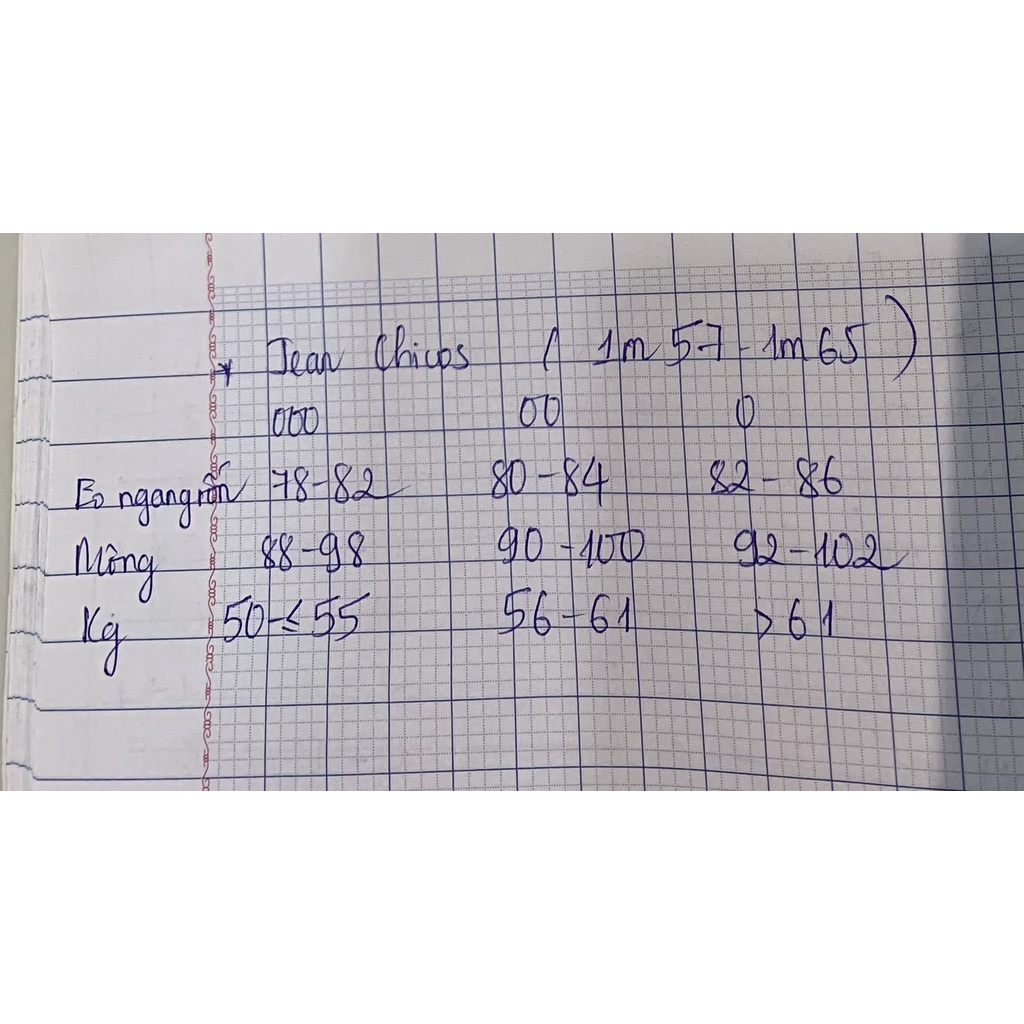 * Jean Chicos ( 1m57 - 1m65 )
000 00 0
Eo ngang rốn 78-82 80-84 82-86
Mông 88-98 90-100 92-102
Kg 50-≤55 56-61 >61